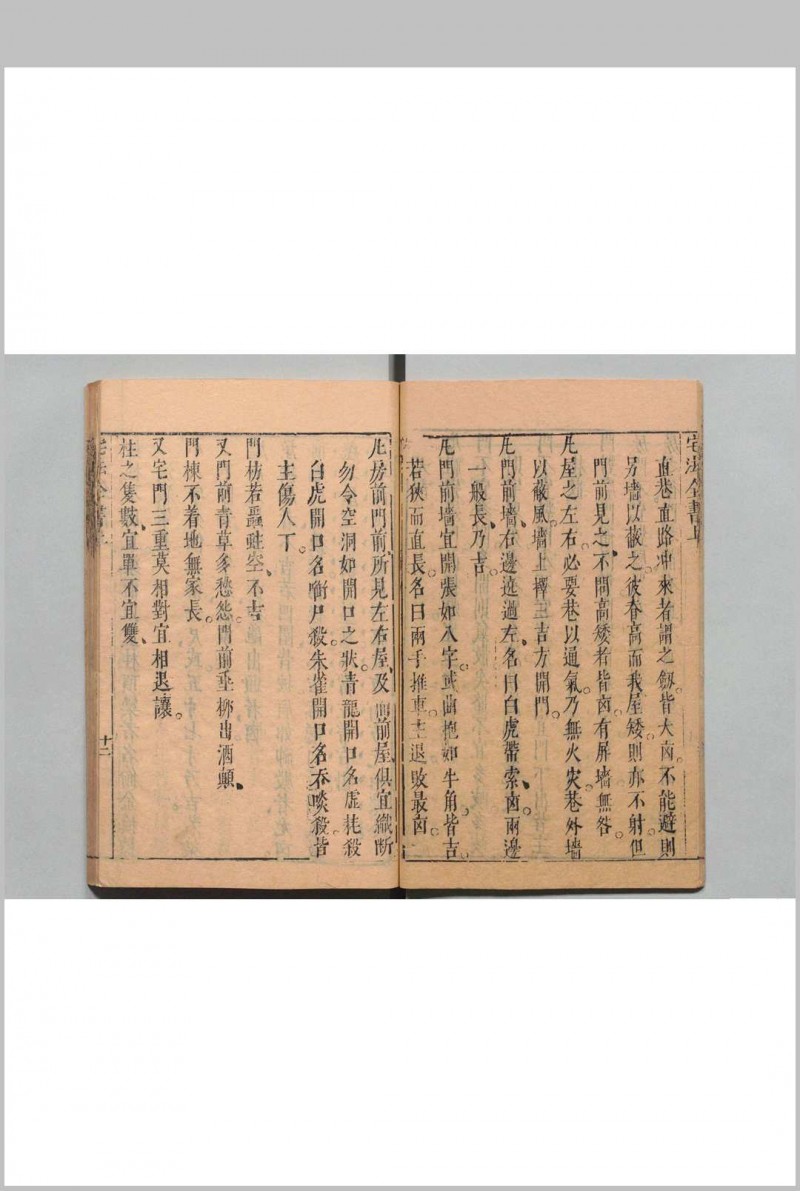 宅法全書上
直巷直路冲來者謂之劔皆大凶不能避則
另墙以蔽之彼脊高而我屋矮則亦不射但
門前見之不問高矮者皆凶有屏墙無咎
凡屋之左右必要巷以通氣乃無火灾巷外墙
以蔽風墙上擇三吉方開門
凡門前墙右邊遶過左名曰白虎帶索凶兩邊
一般長乃吉
凡門前墙宜開張如八字或曲抱如牛角皆吉
若狹而直長名曰兩手推車主退敗最凶
凡房前門前所見左右屋及面前屋俱宜織断
勿令空洞如開口之狀青龍開口名虛耗殺
白虎開口名啣尸殺朱雀開口名吞啖殺皆
主傷人丁
門枋若蟲蛀空不吉
又門前青草多愁怨門前垂栁出酒顛
門棟不着地無家長
又宅門三重莫相對宜相退讓
柱之隻數宜單不宜雙
宅法全書上
十二